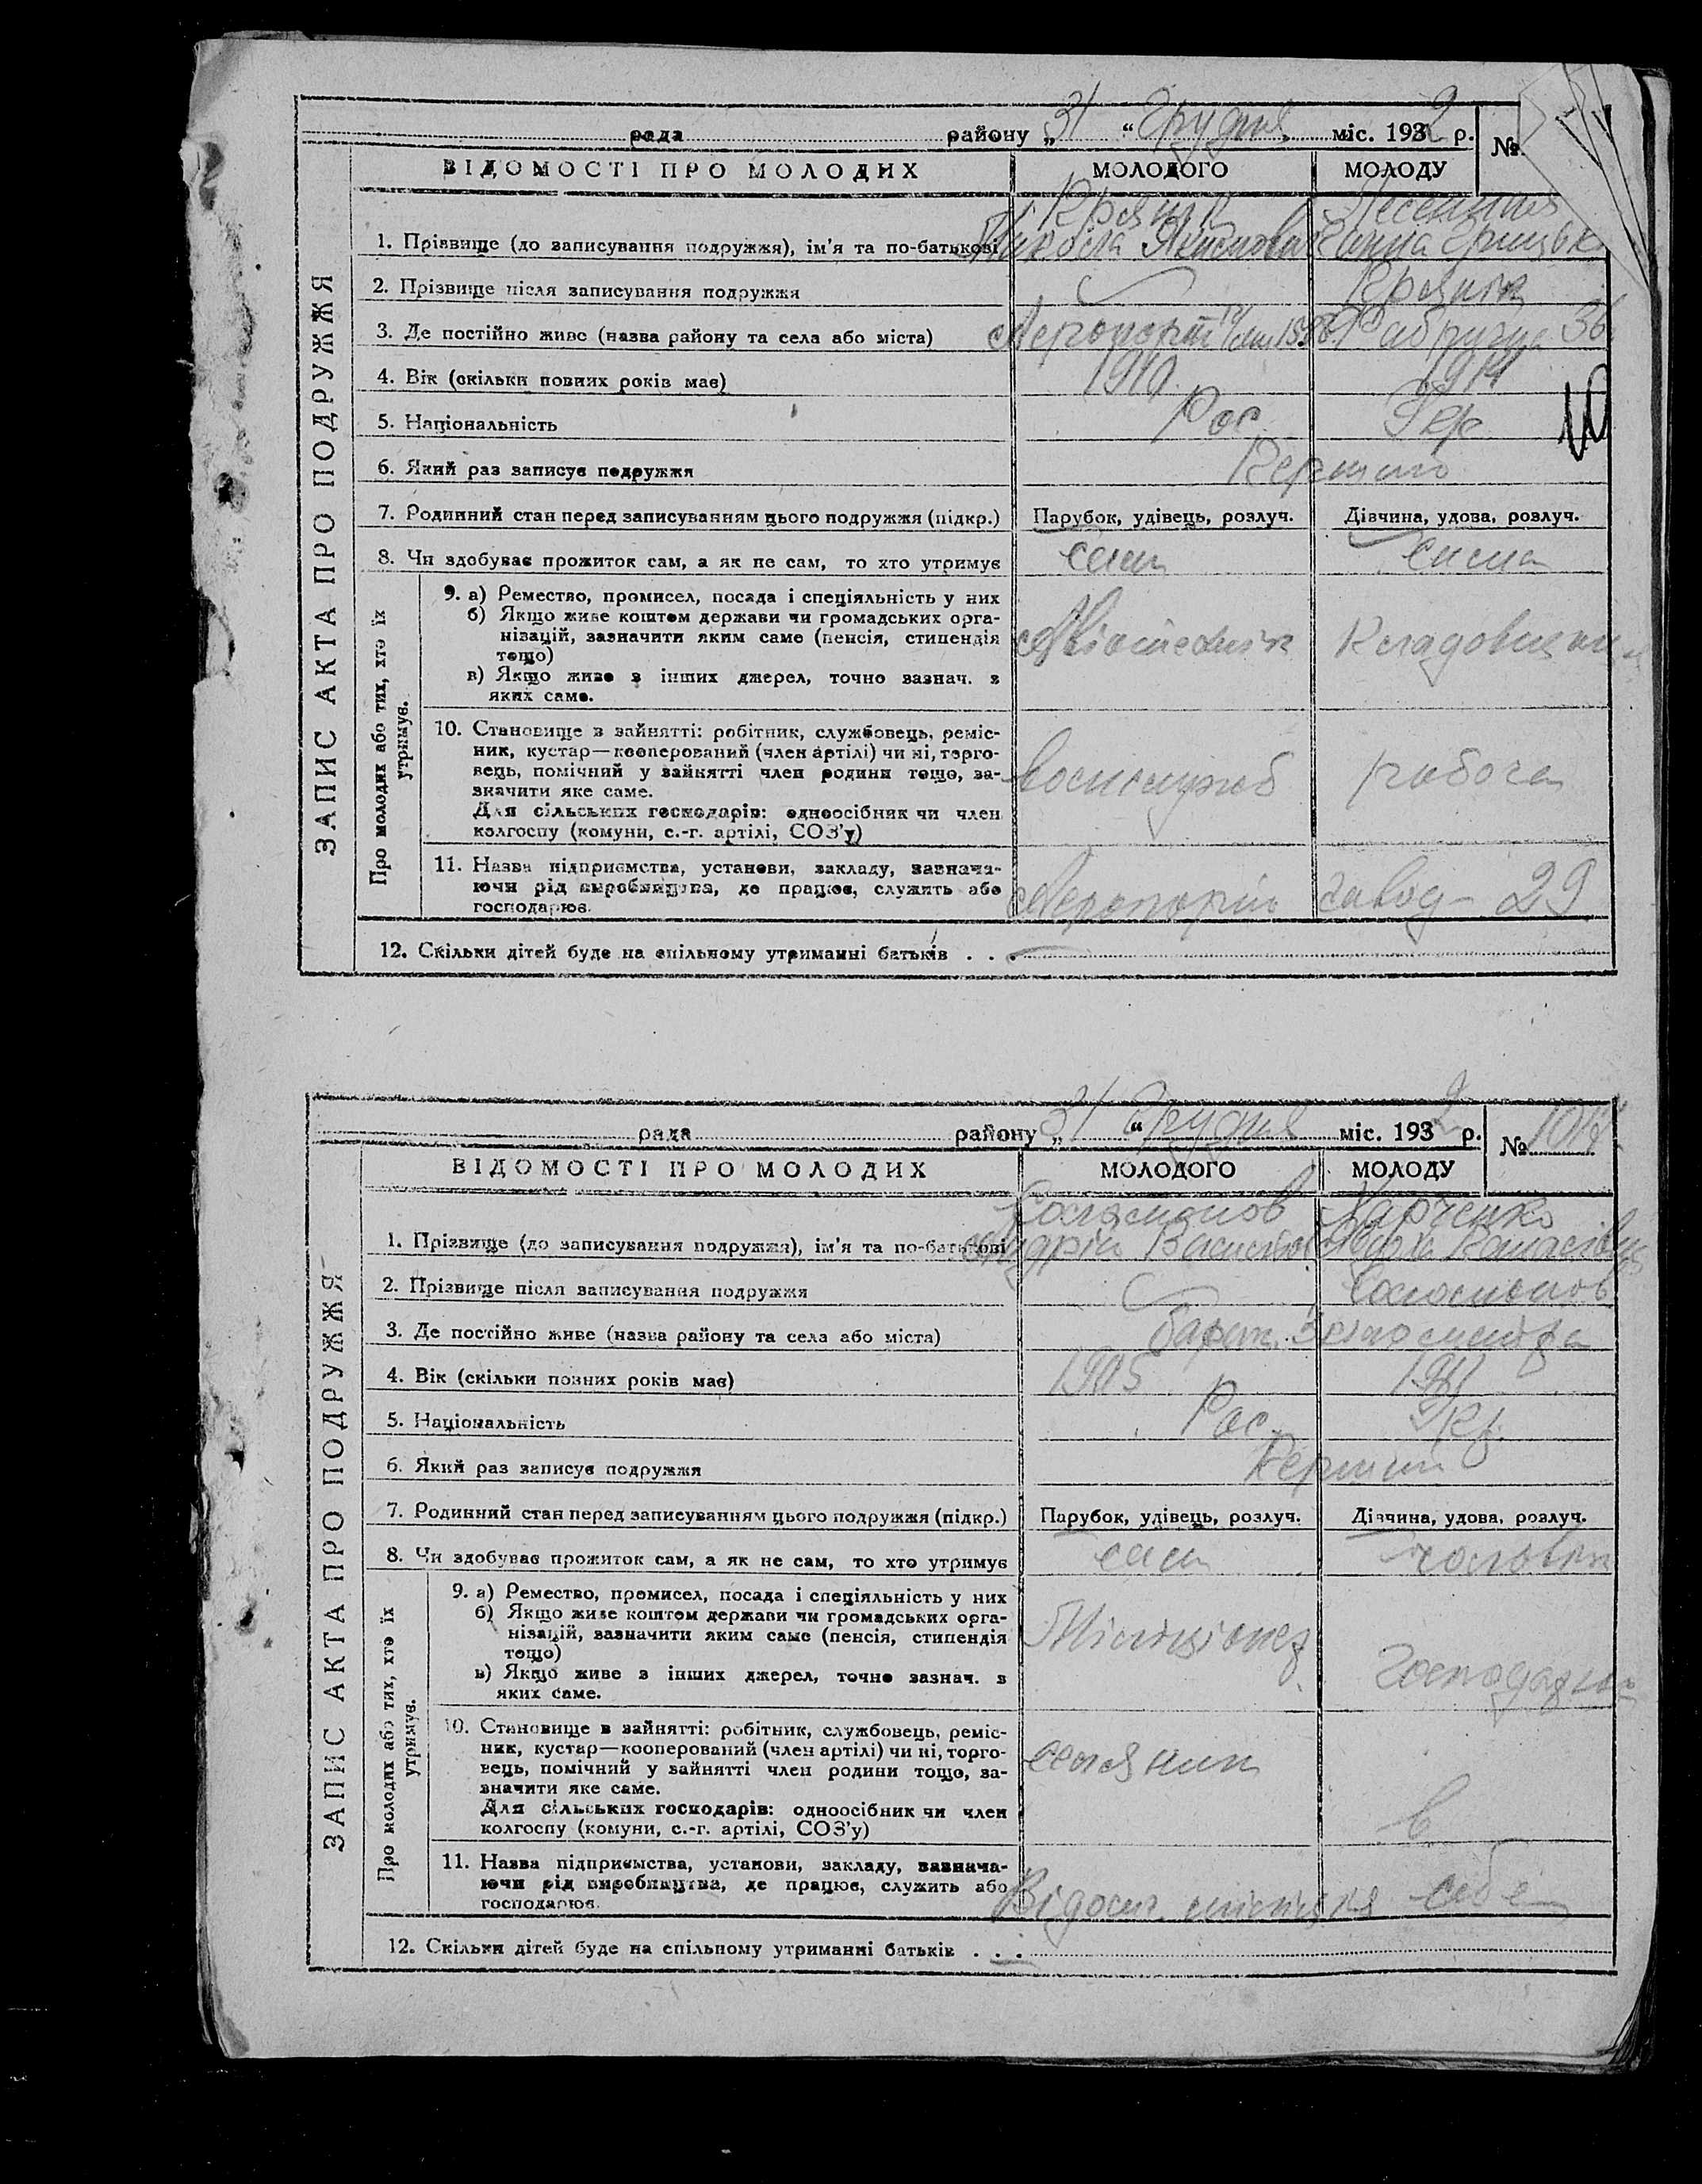 рада району „31“ Грудня міс. 1932 р. №
ВІДОМОСТІ ПРО МОЛОДИХ МОЛОДОГО МОЛОДУ
ЗАПИС АКТА ПРО ПОДРУЖЖЯ
1. Прізвище (до записування подружжя), ім'я та по-батькові Микола
2. Прізвище після записування подружжя
3. Де постійно живе (назва району та села або міста) Аеропорт
4. Вік (скільки повних років має) 1910 1914
5. Національність Рос. Укр.
6. Який раз записує подружжя Перший
7. Родинний стан перед записуванням цього подружжя (підкр.) Парубок, удівець, розлуч. Дівчина, удова, розлуч.
8. Чи здобуває прожиток сам, а як не сам, то хто утримує сам сама
Про молодих або тих, хто їх утримує.
9. а) Ремество, промисел, посада і спеціяльність у них
б) Якщо живе коштом держави чи громадських орга-
нізацій, зазначити яким саме (пенсія, стипендія
тощо) Авіотехнік Кладовщиця
в) Якщо живе з інших джерел, точно зазнач. з
яких саме.
10. Становище в зайнятті: робітник, службовець, реміс-
ник, кустар—кооперований (член артілі) чи ні, торго-
вець, помічний у зайнятті член родини тощо, за-
значити яке саме. робоча
Для сільських господарів: одноосібник чи член
колгоспу (комуни, с.-г. артілі, СОЗ'у)
11. Назва підприємства, установи, закладу, зазнача-
ючи рід виробництва, де працює, служить або
господарює. Аеропорт завод - 29
12. Скільки дітей буде на спільному утриманні батьків . . .
рада району „31“ Грудня міс. 1932 р. №
ВІДОМОСТІ ПРО МОЛОДИХ МОЛОДОГО МОЛОДУ
ЗАПИС АКТА ПРО ПОДРУЖЖЯ
Харченко
1. Прізвище (до записування подружжя), ім'я та по-батькові Андрій
2. Прізвище після записування подружжя
3. Де постійно живе (назва району та села або міста)
4. Вік (скільки повних років має) 1905 1911
5. Національність Рос. Укр.
6. Який раз записує подружжя Перший
7. Родинний стан перед записуванням цього подружжя (підкр.) Парубок, удівець, розлуч. Дівчина, удова, розлуч.
8. Чи здобуває прожиток сам, а як не сам, то хто утримує сам чоловік
Про молодих або тих, хто їх утримує.
9. а) Ремество, промисел, посада і спеціяльність у них
б) Якщо живе коштом держави чи громадських орга-
нізацій, зазначити яким саме (пенсія, стипендія Міліціонер
тощо)
в) Якщо живе з інших джерел, точно зазнач. з
яких саме.
10. Становище в зайнятті: робітник, службовець, реміс-
ник, кустар—кооперований (член артілі) чи ні, торго-
вець, помічний у зайнятті член родини тощо, за- селянин
значити яке саме.
Для сільських господарів: одноосібник чи член
колгоспу (комуни, с.-г. артілі, СОЗ'у) в
11. Назва підприємства, установи, закладу, зазнача-
ючи рід виробництва, де працює, служить або себе
господарює.
12. Скільки дітей буде на спільному утриманні батьків . . .